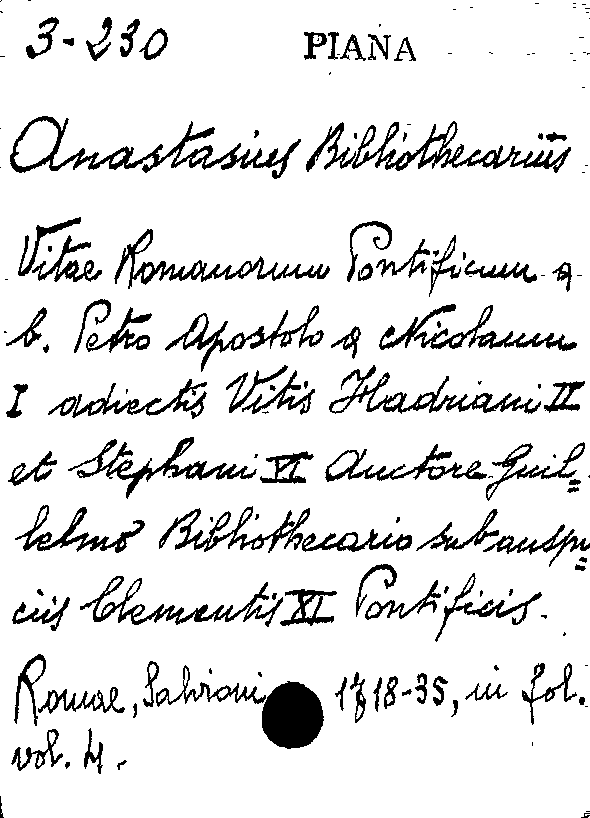 3-230 PIANA
Anastasius Bibliothecarius
Vitae Romanorum Pontificum a
b. Petro Apostolo a Nicolaum
I adiectis Vitis Hadriani II
et Stephani VI Auctore Guil=
lelmo Bibliothecario sub auspi=
ciis Clementis XI Pontificis.
Romae, Salvioni 1718-35, in fol.
vol. 4.